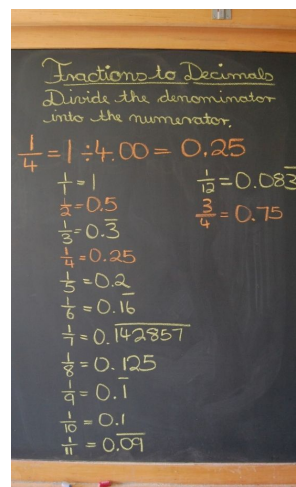 Fractions to Decimals
Divide the denominator
into the numerator.
1/4 = 1 ÷ 4.00 = 0.25
1/1 = 1
1/2 = 0.5
1/3 = 0.3̅
1/4 = 0.25
1/5 = 0.2
1/6 = 0.16̅
1/7 = 0.1̅4̅2̅8̅5̅7̅
1/8 = 0.125
1/9 = 0.1̅
1/10 = 0.1
1/11 = 0.0̅9̅
1/12 = 0.083̅
3/4 = 0.75